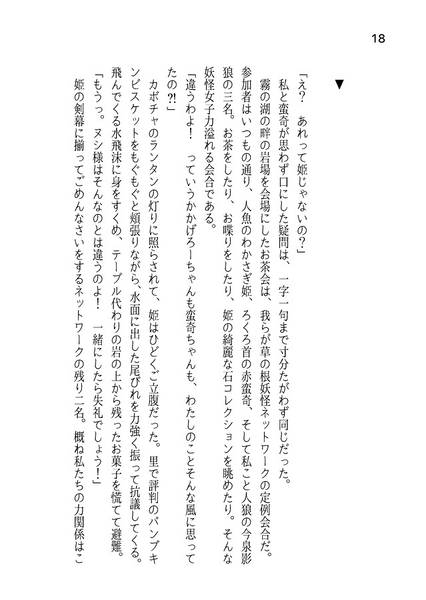 18
▼
「え？　あれって姫じゃないの？」
　私と蛮奇が思わず口にした疑問は、一字一句まで寸分たがわず同じだった。
　霧の湖の畔の岩場を会場にしたお茶会は、我らが草の根妖怪ネットワークの定例会合だ。
参加者はいつもの通り、人魚のわかさぎ姫、ろくろ首の赤蛮奇、そして私こと人狼の今泉影
狼の三名。お茶をしたり、お喋りをしたり、姫の綺麗な石コレクションを眺めたり。そんな
妖怪女子力溢れる会合である。
「違うわよ！　っていうかかげろーちゃんも蛮奇ちゃんも、わたしのことそんな風に思って
たの⁈」
　カボチャのランタンの灯りに照らされて、姫はひどくご立腹だった。里で評判のパンプキ
ンビスケットをもぐもぐと頬張りながら、水面に出した尾びれを力強く振って抗議してくる。
飛んでくる水飛沫に身をすくめ、テーブル代わりの岩の上から残ったお菓子を慌てて避難。
「もうっ。ヌシ様はそんなのとは違うのよ！　一緒にしたら失礼でしょう！」
　姫の剣幕に揃ってごめんなさいをするネットワークの残り二名。概ね私たちの力関係はこ